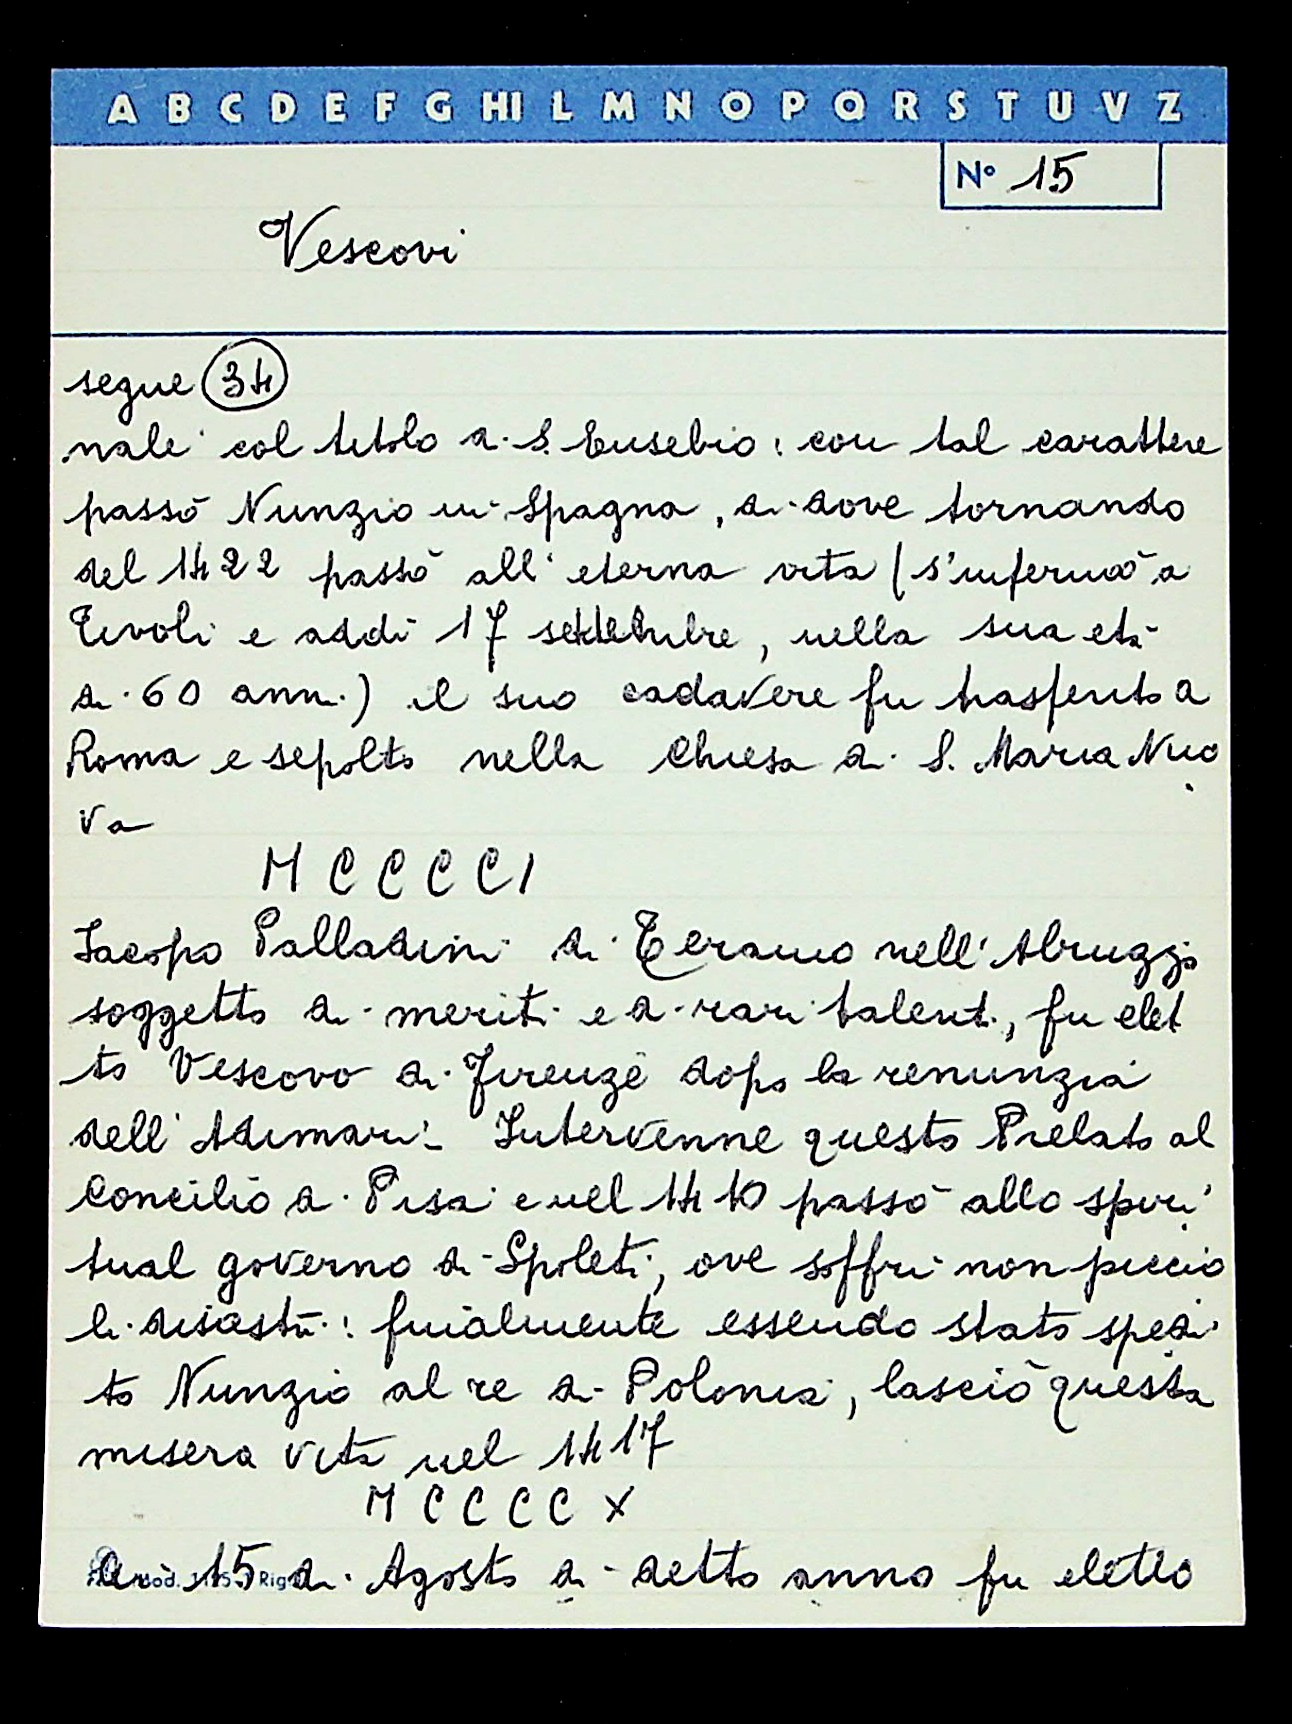 A B C D E F G HI L M N O P Q R S T U V Z
N° 15
Vescovi
segue 34
nale col titolo di S. Eusebio: con tal carattere
passò Nunzio in Spagna, di dove tornando
del 1422 passò all'eterna vita (s'infermò a
Tivoli e addì 17 settembre, nella sua età
di 60 anni.) il suo cadavere fu trasferito a
Roma e sepolto nella Chiesa di S. Maria Nuo
va
MCCCCI
Iacopo Palladini di Teramo nell'Abruzzo
soggetto di meriti e di rari talenti, fu elet
to Vescovo di Firenze dopo la renunzia
dell'Adimari. Intervenne questo Prelato al
Concilio di Pisa e nel 1410 passò allo spiri
tual governo di Spoleti, ove soffrì non piccio
li disastri: finalmente essendo stato spedi
to Nunzio al re di Polonia, lasciò questa
misera vita nel 1417
MCCCCX
15 di Agosto di detto anno fu eletto